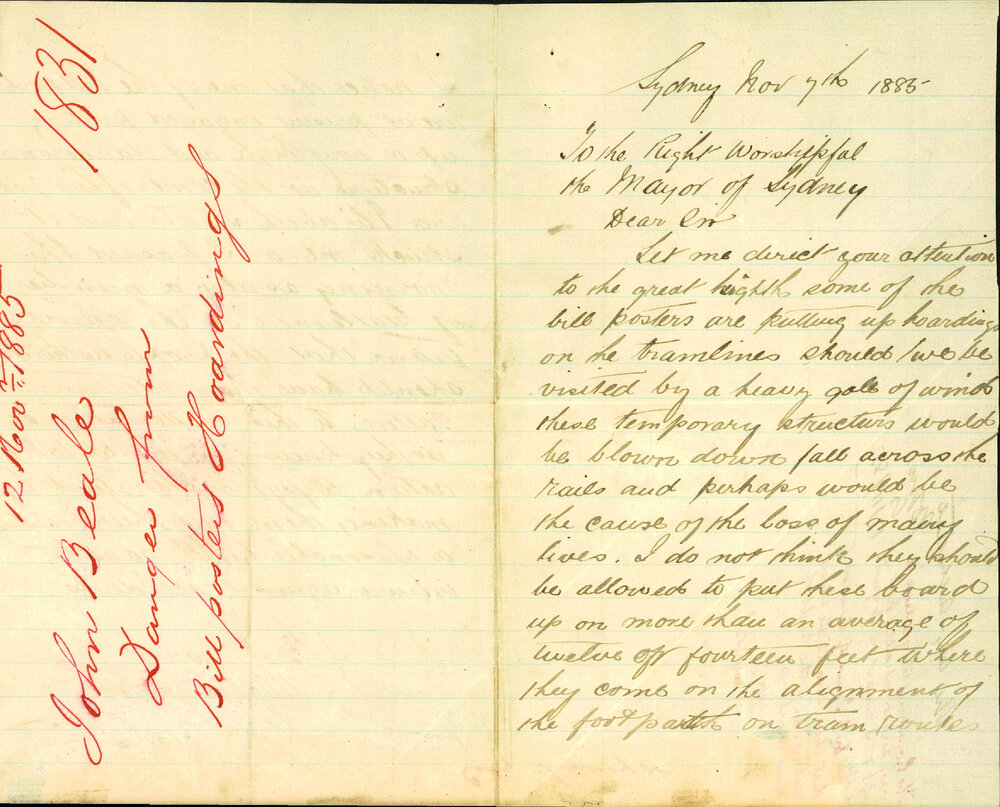 1831
12 Nov 1885
John Beale
Danger from
Bill posters Hoardings
Sydney Nov 7th 1885
To the Right Worshipful
the Mayor of Sydney
Dear Sir
Let me direct your attention
to the great highth some of the
bill posters are putting up hoardings
on he tramlines should we be
visited by a heavy gale of wind
these temporary structurs would
be blown down fall across the
rails and perhaps would be
the cause of the loss of many
lives. I do not think they should
be allowed to put these board
up on more than an average of
twelve or fourteen feet where
they come on the alignment of
the foot path on tram routes